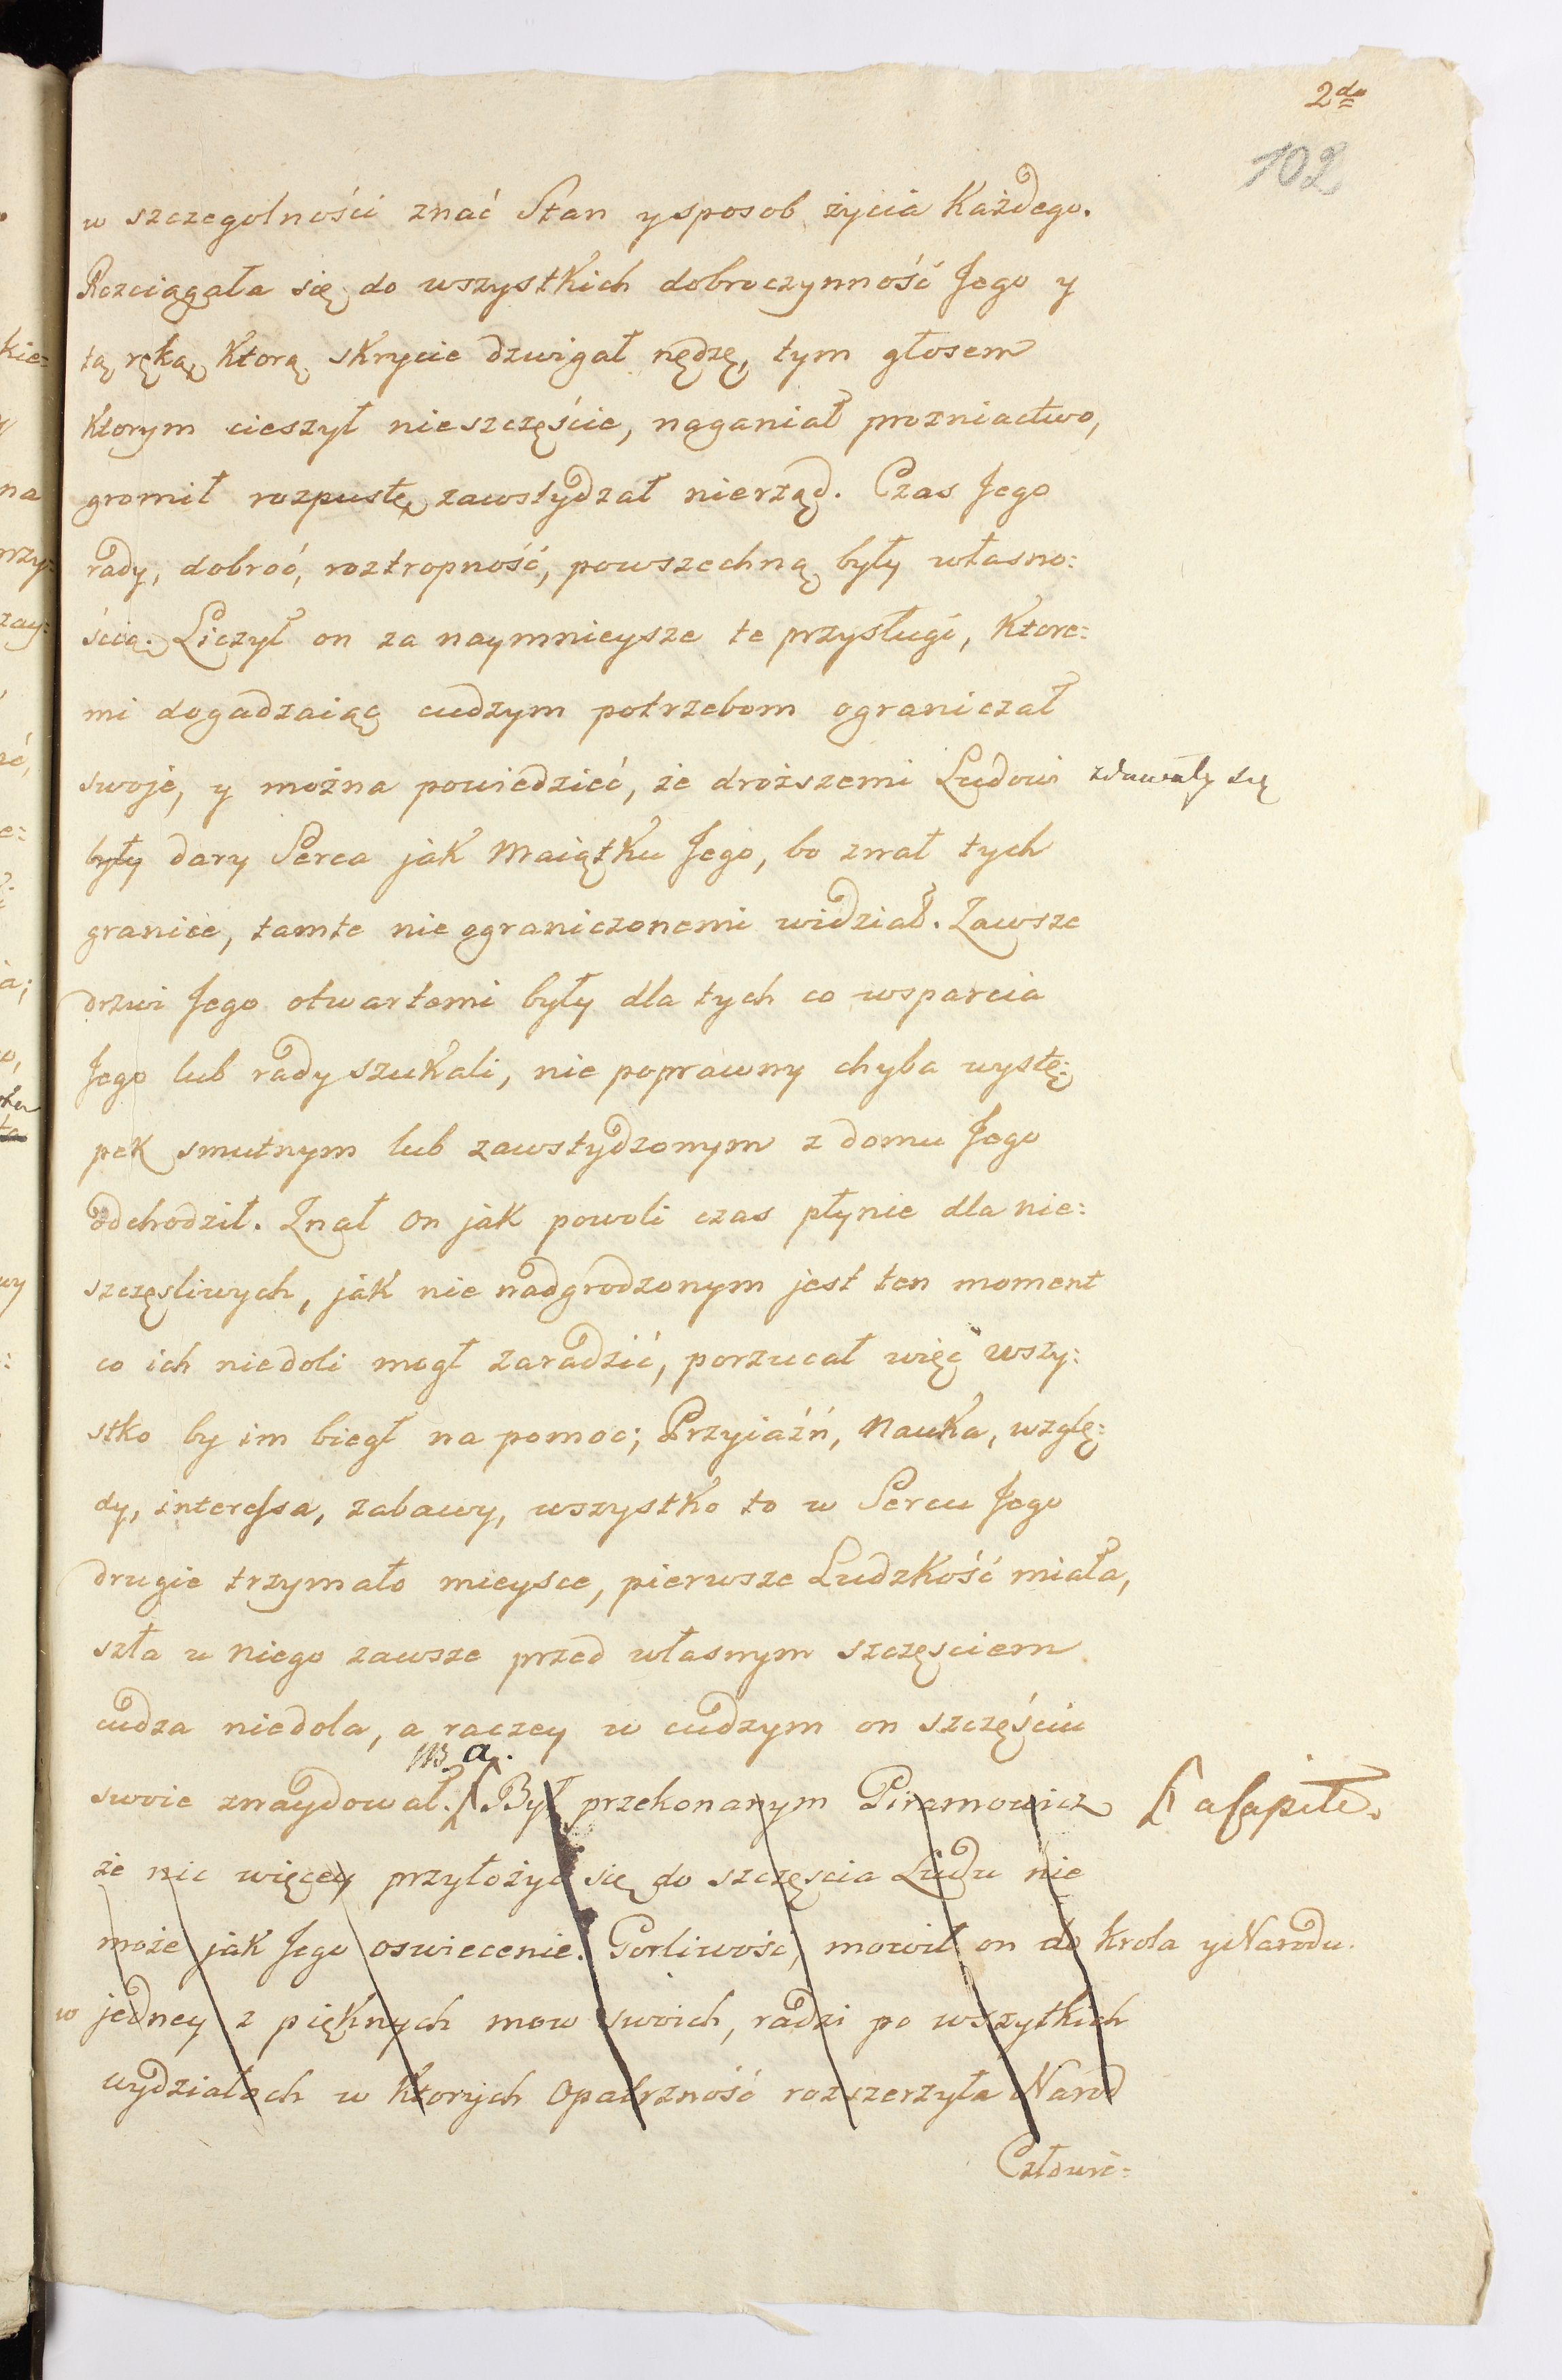 2do
102
w szczegolności znać Stan y sposob życia Każdego.
Rozciągała się do wszystkich dobroczynność Jego y
tą ręką, Ktorą skrycie dzwigał nędzę, tym głosem
Ktorym cieszył nieszczęście, naganiał prozniactwo,
gromił rozpustę, zawstydzał nierząd. Czas Jego
rady, dobroć, roztropność, powszechną były własno:
ścią: Liczył on za naymnieysze te przysługi, Ktore:
mi dogadzaiąc cudzym potrzebom ograniczał
swoje, y można powiedzieć, że droższemi Ludowi zdawały się
były dary Serca jak Maiątku Jego, bo znał tych
granice, tamte nie ograniczonemi widział. Zawsze
drzwi Jego otwartemi były dla tych co wsparcia
Jego lub rady szukali, nie poprawny chyba wystę:
pek smutnym lub zawstydzonym z domu Jego
odchodził. Znał on jak powoli czas płynie dla nie:
szczęsliwych, jak nie nadgrodzonym jest ten moment
co ich niedoli mogł zaradzić, porzucał więc wszy:
stko by im biegł na pomoc; Przyiaźń, Nauka, wzglę:
dy, interessa, zabawy, wszystko to w Sercu Jego
drugie trzymało mieysce, pierwsze Ludzkość miała,
szła u niego zawsze przed własnym szczęsciem
cudza niedola, a raczey w cudzym on szczęściu
a.
swoie znaydował. Był przekonanym Piramowicz a capite.
że nic więcey przyłożyć się do szczęscia Ludu nie
może jak Jego oswiecenie. Gorliwość, mowił on do Krola y Narodu.
w jedney z pięknych mow swoich, radzi po wszytkich
wydziałach w Ktorych Opatrzność rozszerzyła Narod
Człowie: